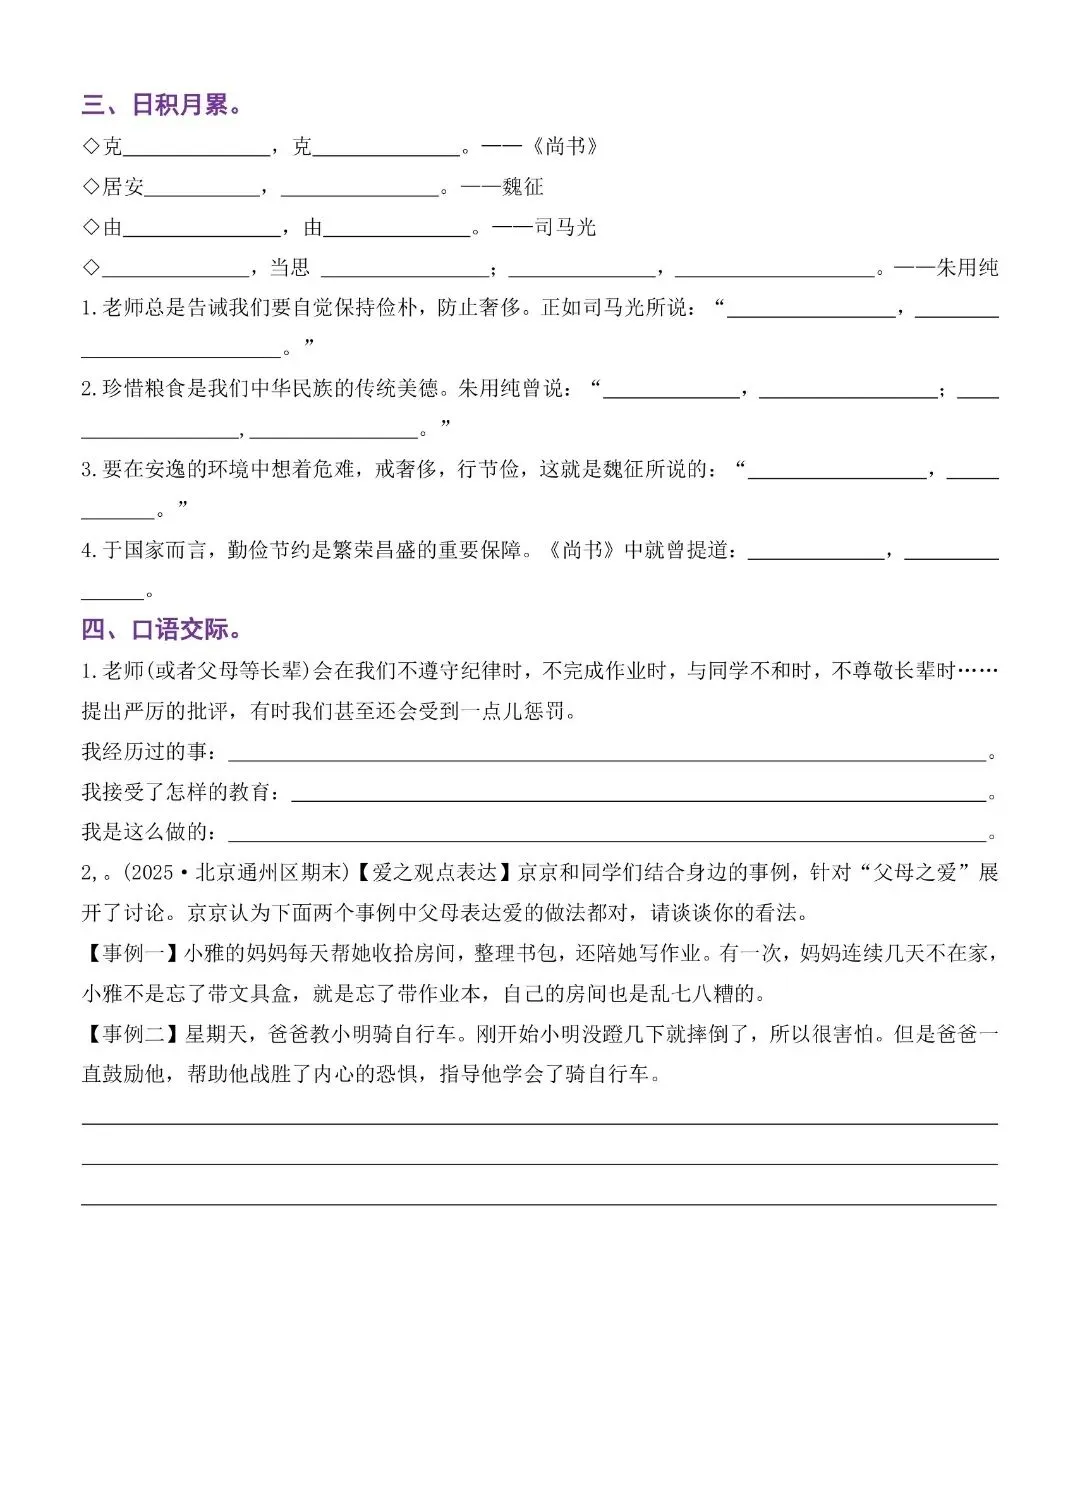 三、日积月累。
◇克______________，克______________。——《尚书》
◇居安___________，_______________。——魏征
◇由_______________，由______________。——司马光
◇______________，当思 ________________；______________，___________________。——朱用纯
1.老师总是告诫我们要自觉保持俭朴，防止奢侈。正如司马光所说：“________________，________
___________________。”
2.珍惜粮食是我们中华民族的传统美德。朱用纯曾说：“_____________，_________________；____
_______________,________________。”
3.要在安逸的环境中想着危难，戒奢侈，行节俭，这就是魏征所说的：“_________________，_____
_______。”
4.于国家而言，勤俭节约是繁荣昌盛的重要保障。《尚书》中就曾提道：_____________，_________
______。
四、口语交际。
1.老师(或者父母等长辈)会在我们不遵守纪律时，不完成作业时，与同学不和时，不尊敬长辈时……
提出严厉的批评，有时我们甚至还会受到一点儿惩罚。
我经历过的事：________________________________________________________________________。
我接受了怎样的教育：__________________________________________________________________。
我是这么做的：________________________________________________________________________。
2,。(2025·北京通州区期末)【爱之观点表达】京京和同学们结合身边的事例，针对“父母之爱”展
开了讨论。京京认为下面两个事例中父母表达爱的做法都对，请谈谈你的看法。
【事例一】小雅的妈妈每天帮她收拾房间，整理书包，还陪她写作业。有一次，妈妈连续几天不在家，
小雅不是忘了带文具盒，就是忘了带作业本，自己的房间也是乱七八糟的。
【事例二】星期天，爸爸教小明骑自行车。刚开始小明没蹬几下就摔倒了，所以很害怕。但是爸爸一
直鼓励他，帮助他战胜了内心的恐惧，指导他学会了骑自行车。